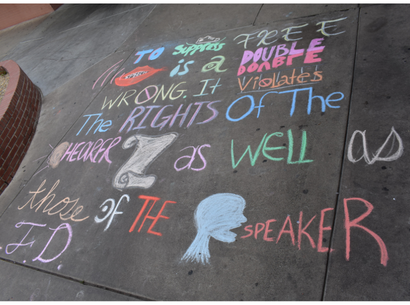 TO Suppress FREE
SPEECH is a DOUBLE
DOUBLE
WRONG. It Violates
The RIGHTS Of The
HEARER as WELL as
those of THE SPEAKER
F.D.